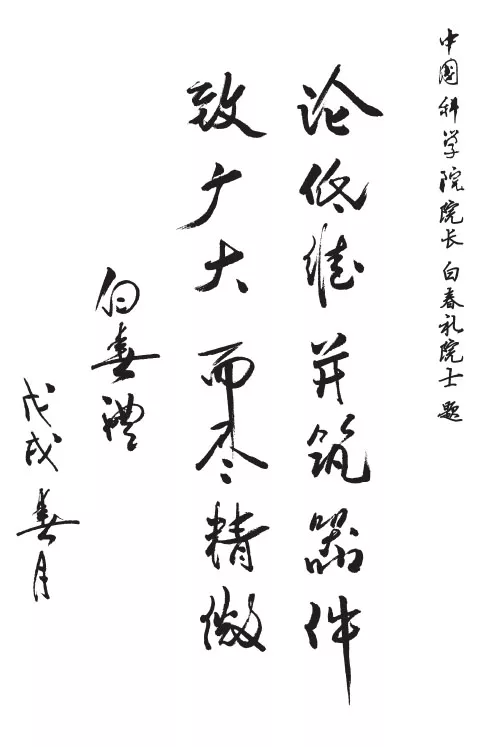 中国科学院院长 白春礼院士 题
论低维并筑器件
致广大而尽精微
白春礼
戊戌春月